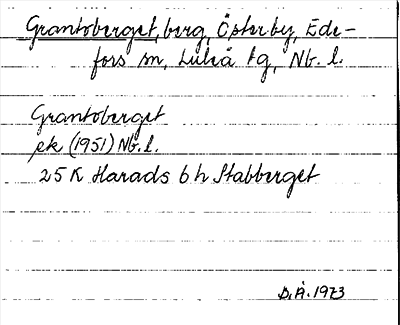 Grantoberget, berg, Österby, Ede-
fors sn, Luleå tg, Nb. l.
Grantoberget
ek (1951) Nb. l.
25 K Harads 6 h Stabberget
D.Å. 1973